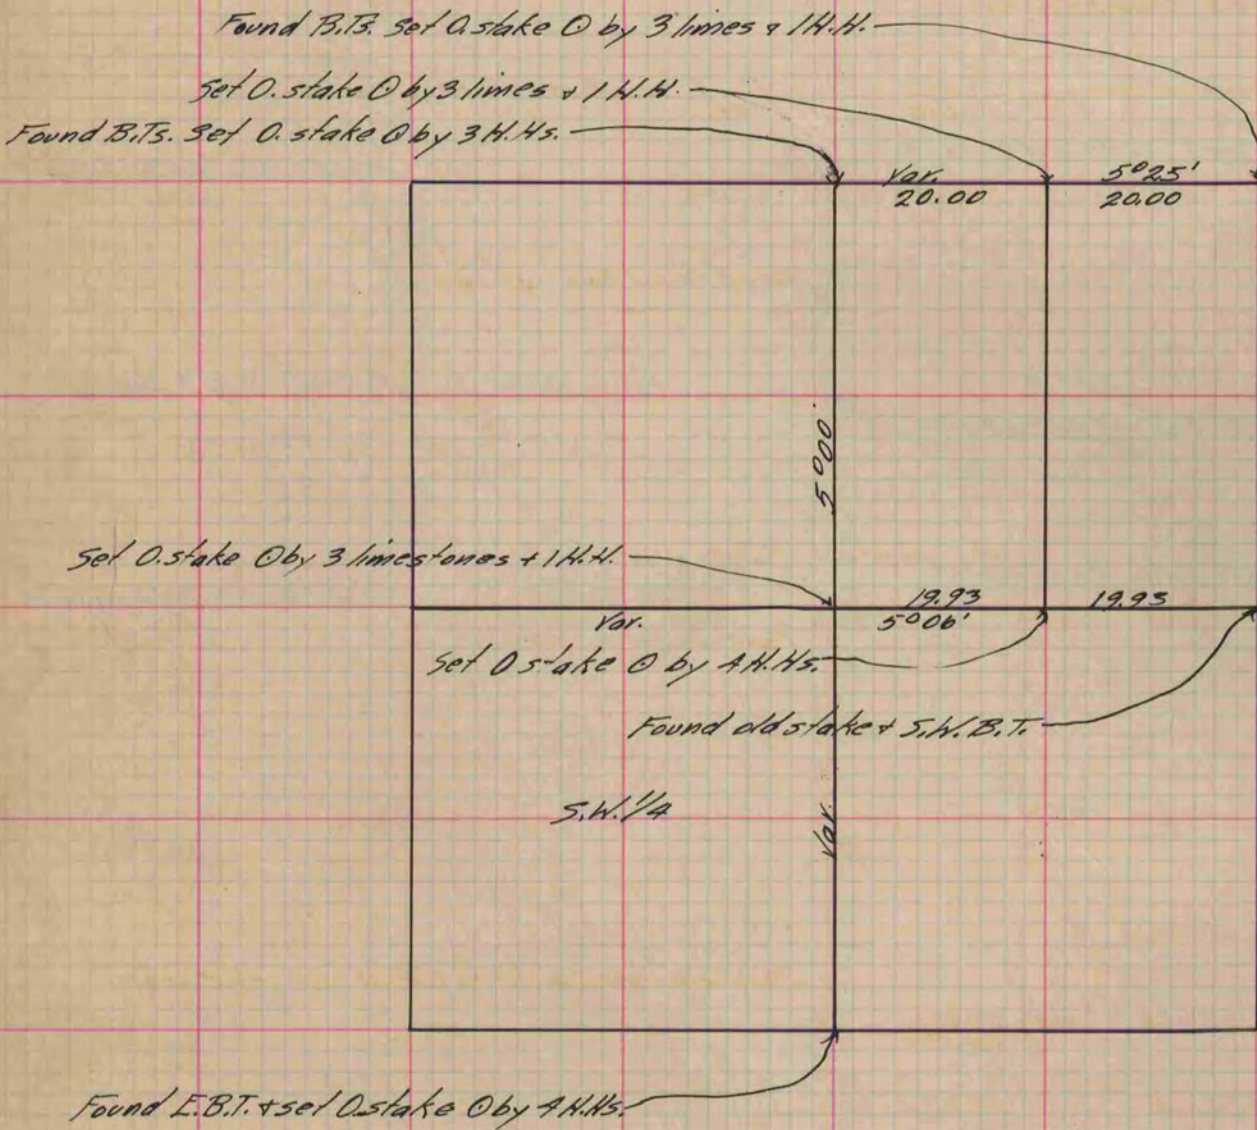 Found B.Ts. Set O. stake ⊙ by 3 limes + 1 H.H.
Set O. stake ⊙ by 3 limes + 1 H.H.
Found B.Ts. Set O. stake ⊙ by 3 H.Hs.
Var. 5°25'
20.00 20.00
5°00'
Set O. stake ⊙ by 3 limestones + 1 H.H.
19.93 19.93
Var. 5°06'
Set O stake ⊙ by 4 H.Hs.
Found old stake + S.W.B.T.
S.W. 1/4
Var.
Found E.B.T. + set O. stake ⊙ by 4 H.Hs.